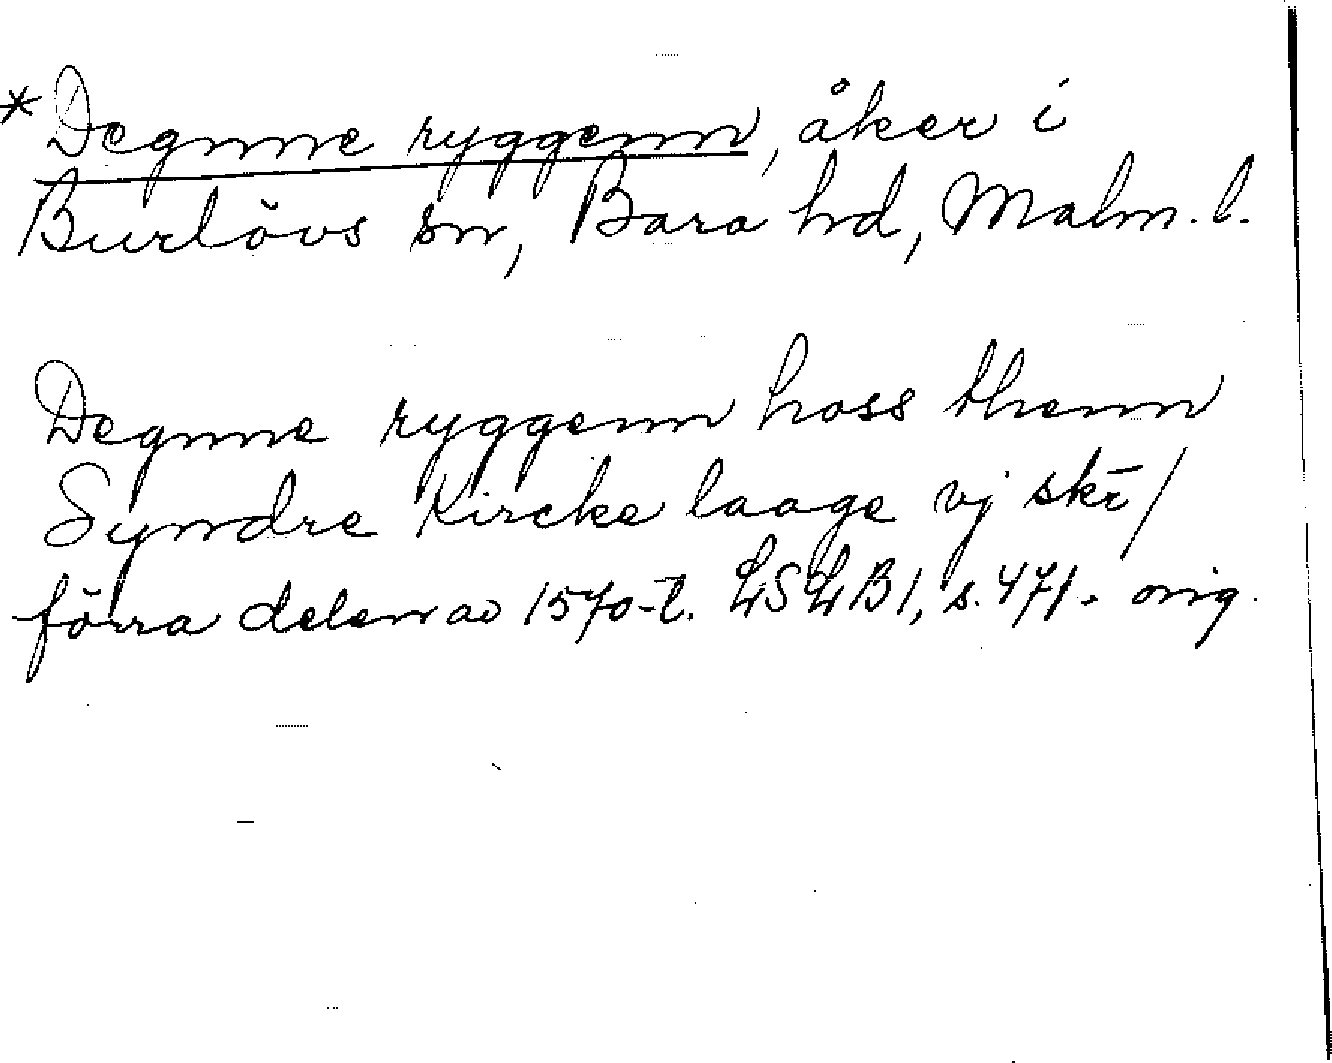 *Degnne ryggenn, åker i
Burlövs sn, Bara hd, Malm. l.
Degnne ryggenn hoss thenn
Syndre Kircke laage vj skē/
förra delen av 1570-t. LSLB1, s. 471. orig.